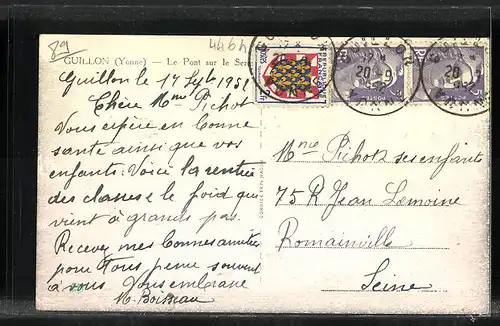 89
4464
GUILLON (Yonne) — Le Pont sur le Serein
Guillon le 17 Sept 1951
Chère Mme Pichot
Vous espère en bonne
santé ainsi que vos
enfants. Voici la rentrée
des classes le froid qui
vient à grands pas.
Recevez mes bonnes amitiés
pour tous pense souvent
à vous Vous embrasse
M. Boisseau
Mme Pichot & ses enfants
75 R Jean Lemoine
Romainville
Seine